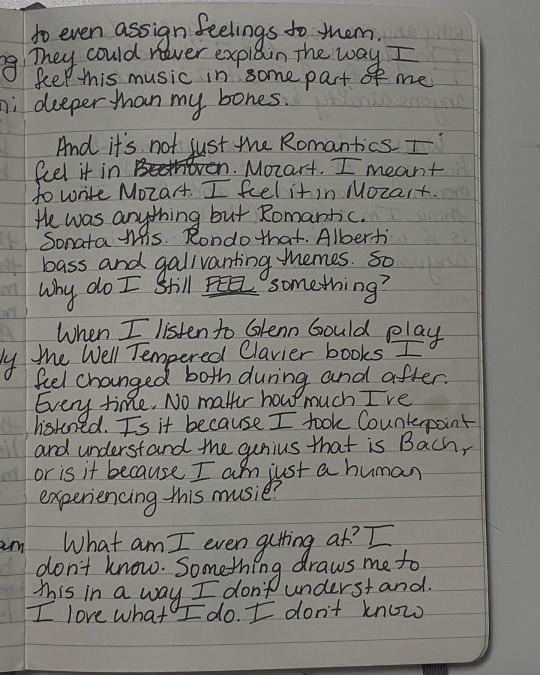 to even assign feelings to them.
ng They could never explain the way I
feel this music in some part of me
ni deeper than my bones.
And it's not just the Romantics I
feel it in Beethoven. Mozart. I meant
to write Mozart. I feel it in Mozart.
He was anything but Romantic.
Sonata this. Rondo that. Alberti
bass and galivanting themes. So
why do I still FEEL something?
When I listen to Glenn Gould play
ly the Well Tempered Clavier books I
feel changed both during and after.
Every time. No matter how much I've
listened. Is it because I took Counterpoint
and understand the genius that is Bach,
or is it because I am just a human
experiencing this music?
am What am I even getting at? I
don't know. Something draws me to
this in a way I don't understand.
I love what I do. I don't know